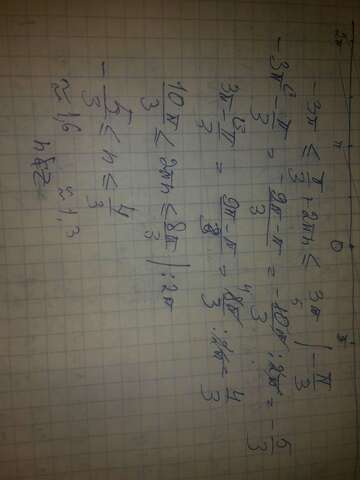 -2π -π 0 π
-3π ≤ π/3 + 2πn ≤ 3π | -π/3
-3π - π/3 = -9π-π/3 = -10π/3 : 2π = -5/3
3π - π/3 = 9π-π/3 = 8π/3 : 2π = 4/3
10π/3 ≤ 2πn ≤ 8π/3 | : 2π
-5/3 ≤ n ≤ 4/3
≈ 1,6 ≈ 1,3